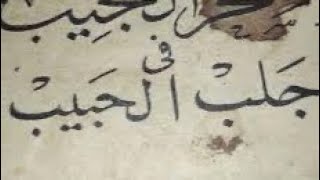 العجيب
في
جَلبْ الحَبيبْ